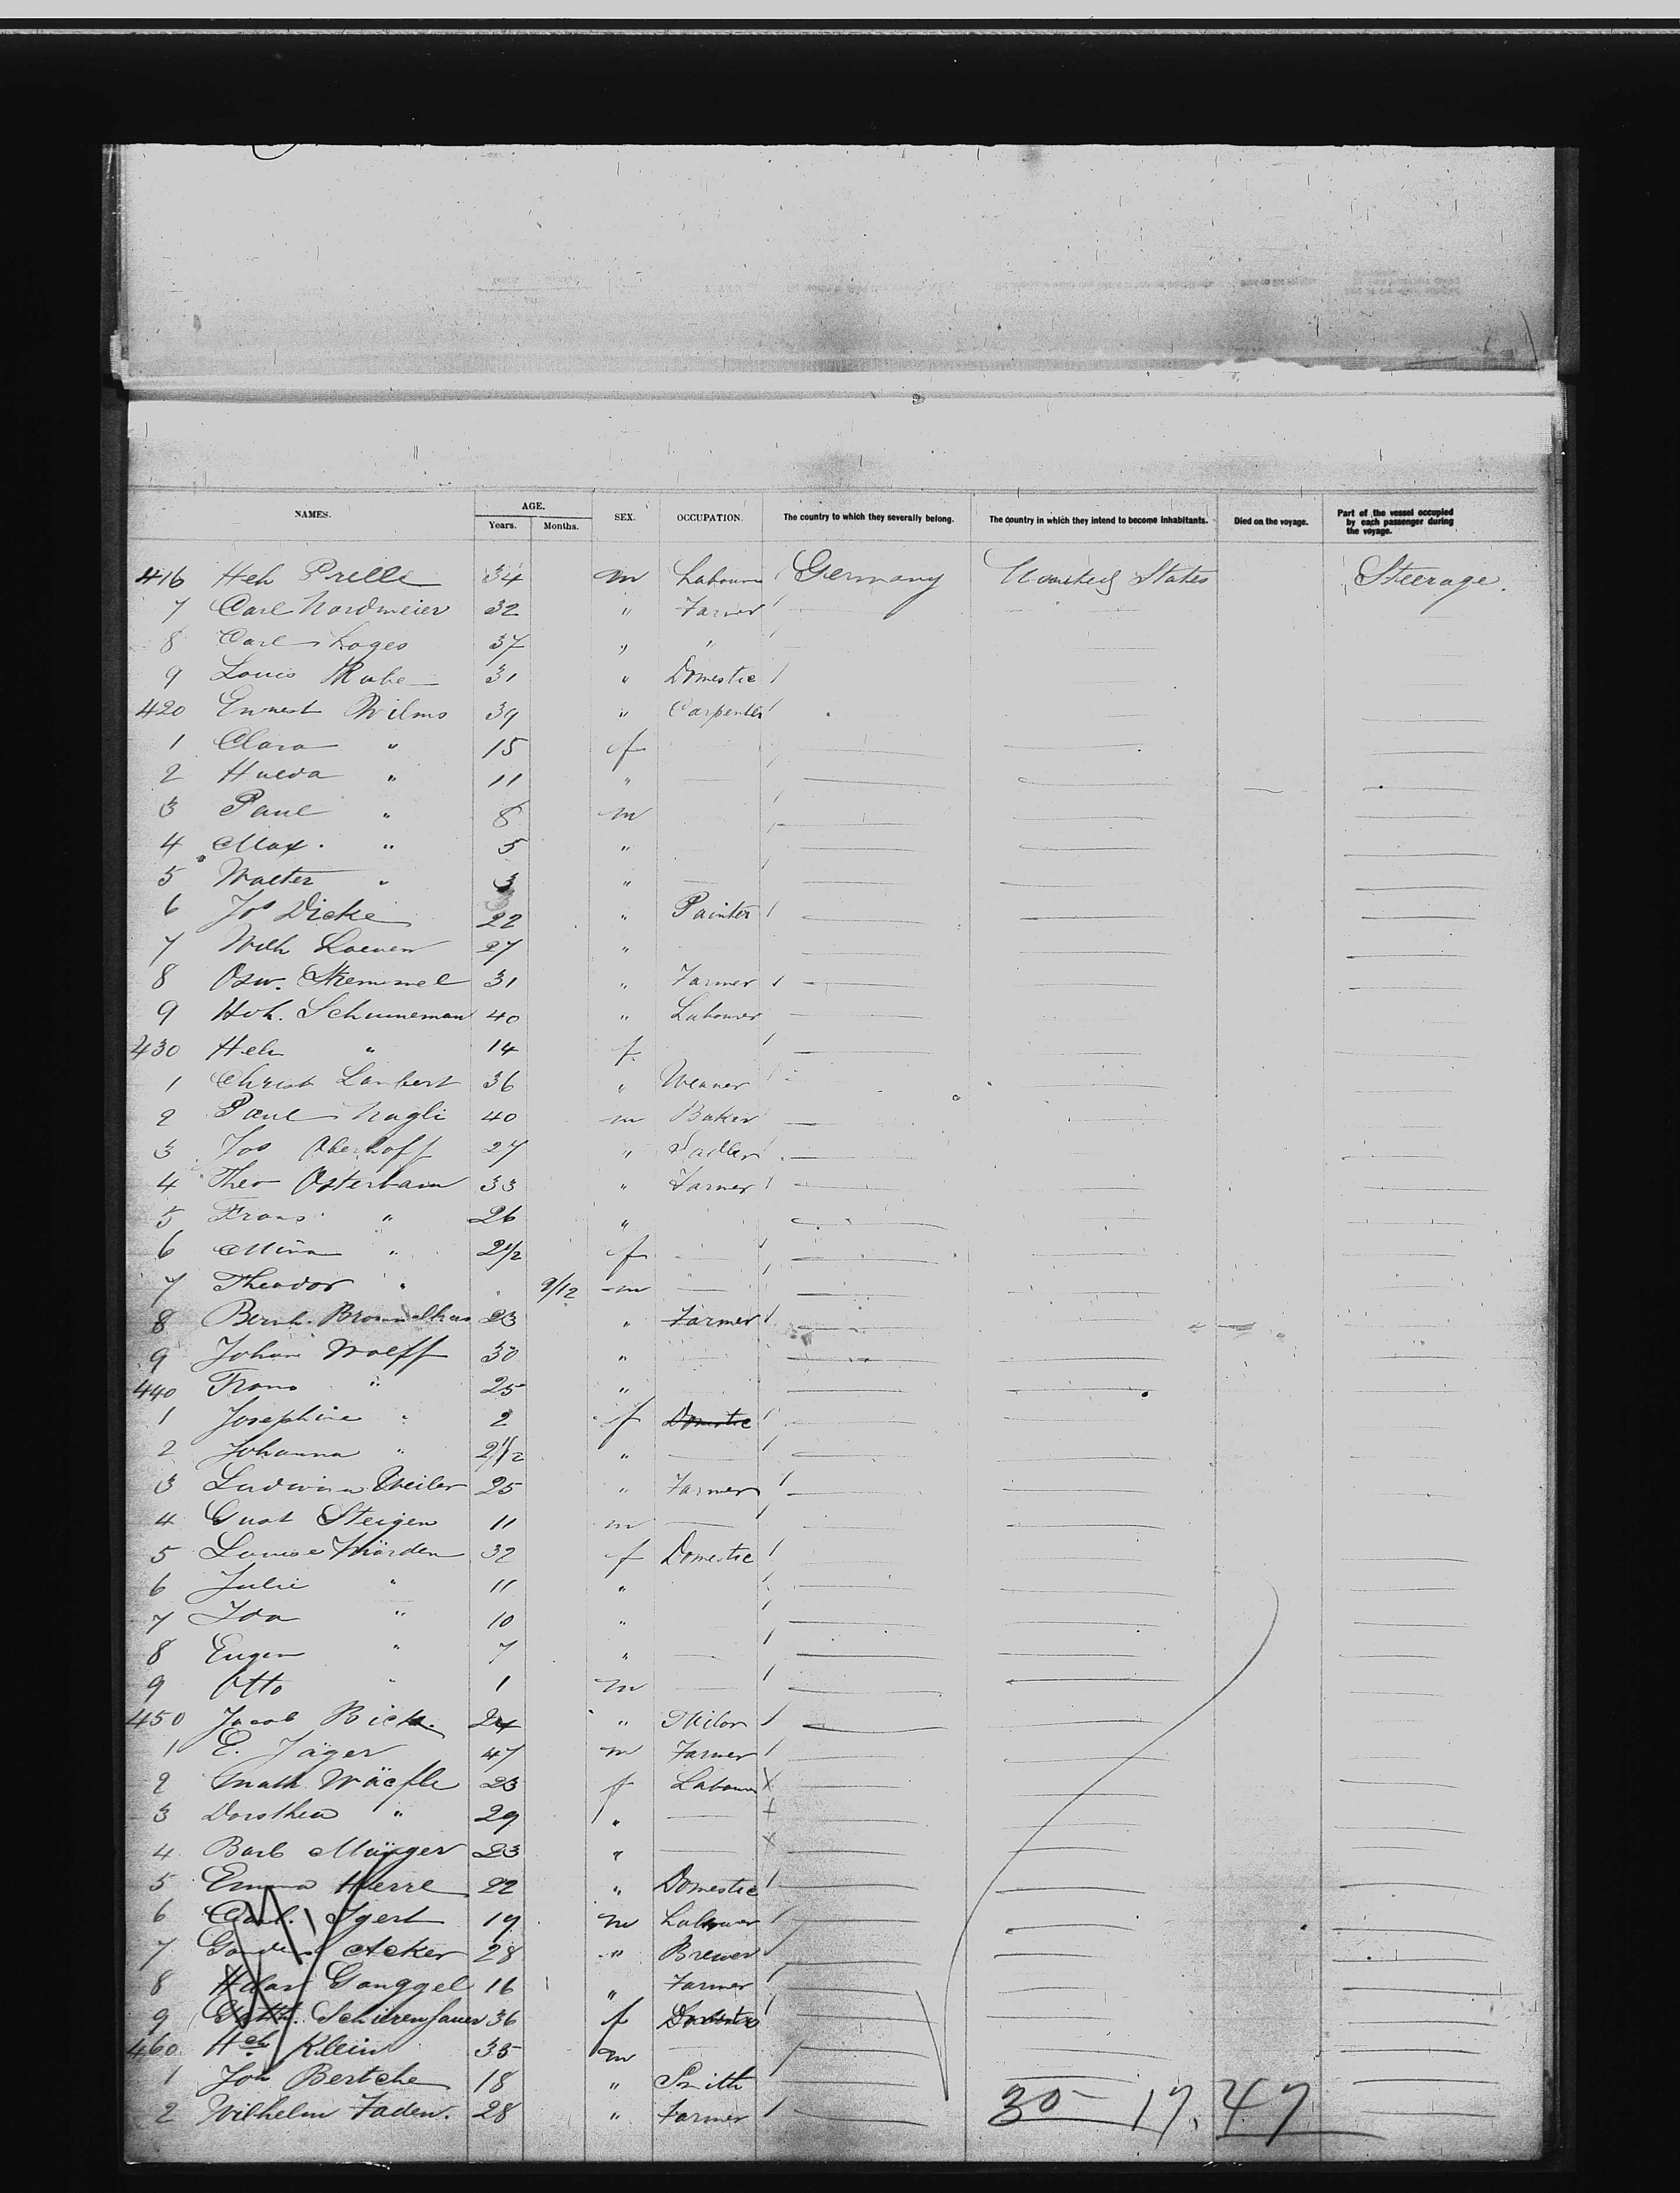 NAMES. AGE. Years. Months. SEX. OCCUPATION. The country to which they severally belong. The country in which they intend to become inhabitants. Died on the voyage. Part of the vessel occupied by each passenger during the voyage.
416 Hch Prelle 34 m Labourer Germany United States Steerage.
7 Carl Nordmeier 32 " Farmer
8 Carl Loges 37 " "
9 Louis 31 " Domestic
420 Ernest Wilms 39 " Carpenter
1 Clara " 15 f
2 Hulda " 11 "
3 Paul " 8 m
4 Max " 5 "
5 Walter " 3 "
6 Jos Dicke 22 " Painter
7 Wilh Loewen 27 "
8 Osw. 31 " Farmer
9 Schuneman 40 " Labourer
430 " 14 f
1 Christ Lambert 36 " Weaver
2 Paul Nagli 40 m Baker
3 Jos Oberhoff 27 " Sadler
4 Theo 33 " Farmer
5 Frans " 26 "
6 Mina " 2 1/2 f
7 Theodor " 9/12 m
8 Bernh. 23 " Farmer
9 Johan Wolff 30 "
440 Frans " 25 "
1 Josephine " 2 f Domestic
2 Johanna " "
3 Weiler 25 " Farmer
4 Gust Steigen 11 m
5 Louise 32 f Domestic
6 Julie " 11 "
7 Ida " 10 "
8 Eugen " 7 "
9 Otto " 1 m
450 Jacob Rick. 24 " Tailor
1 E. Jäger 47 m Farmer
2 Wäcfle 23 f Labourer
3 Dorothea " 29 "
4 Barb 23 "
5 Emma Herre 22 " Domestic
6 Carl. Igert 19 m Labourer
7 Acker 28 " Brewer
8 Ganggel 16 " Farmer
9 36 f
460 Hch Klein 35 m
1 Joh Bertche 18 " Smith
2 Wilhelm Faden. 28 " Farmer
30 17. 47